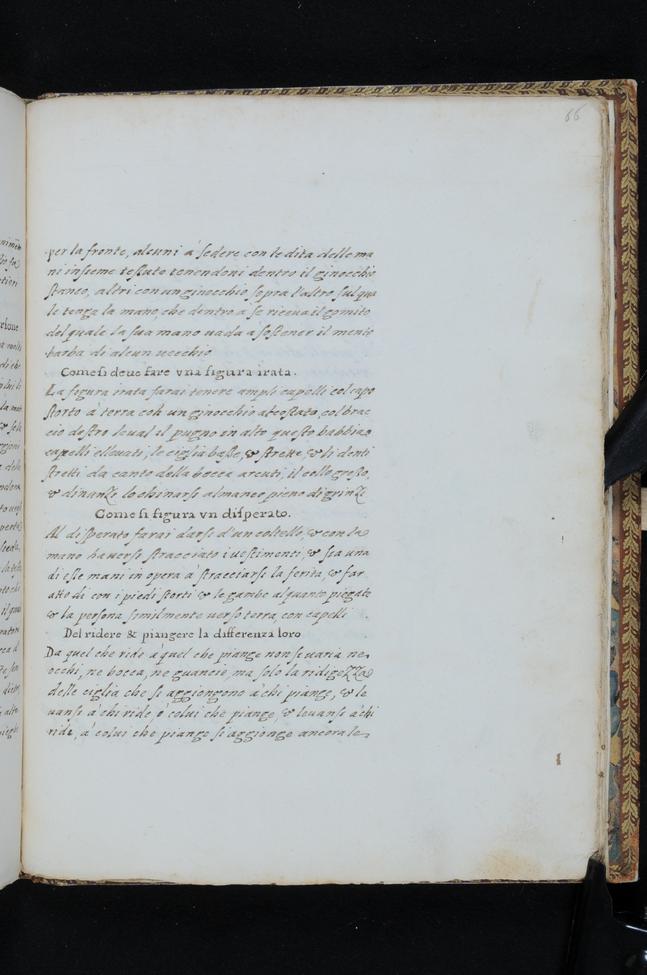 66
per la fronte, alcuni à sedere con le dita delle ma
ni insieme tessuto tenendoni dentro il ginocchio
stanco, altri con un ginocchio sopra l'altro sul qua
le tenga la mano che dentro a se riceva il gomito
del quale la sua mano vada a sostener il mento
barba di alcun vecchio
Come si deue fare vna figura irata.
La figura irata farai tenere ampli capelli col capo
storto à terra coh un ginocchio col brac
cio destro leual el pugno in alto questo habbia
capelli elleuati, le ciglia basse, & strette, & li denti
stretti da canto della bocca arcuti, il collo grosso,
& dinanze lo chinarsi almaneo pieno di grinze
Come si figura vn disperato.
Al disperato farai darse d'un coltello, & con la
mano hauerse stracciato i uestimenti, & sia una
di esse mani in opera à stracciarsi la ferita, & far
atto di con i piedi storti & le gambe alquanto piegate
& la persona similmente uerso terra, con capelli
Del ridere & piangere la differenza loro
Da quel che ride à quel che piange non se uaria ne
occhi, ne bocca, ne guancie, ma solo la ridigezza
delle ciglia che se aggiongono à chi piange, & le
uanse à chi ride, é colui che piange, & leuanse à chi
ride, à colui che piange si aggionge ancora le